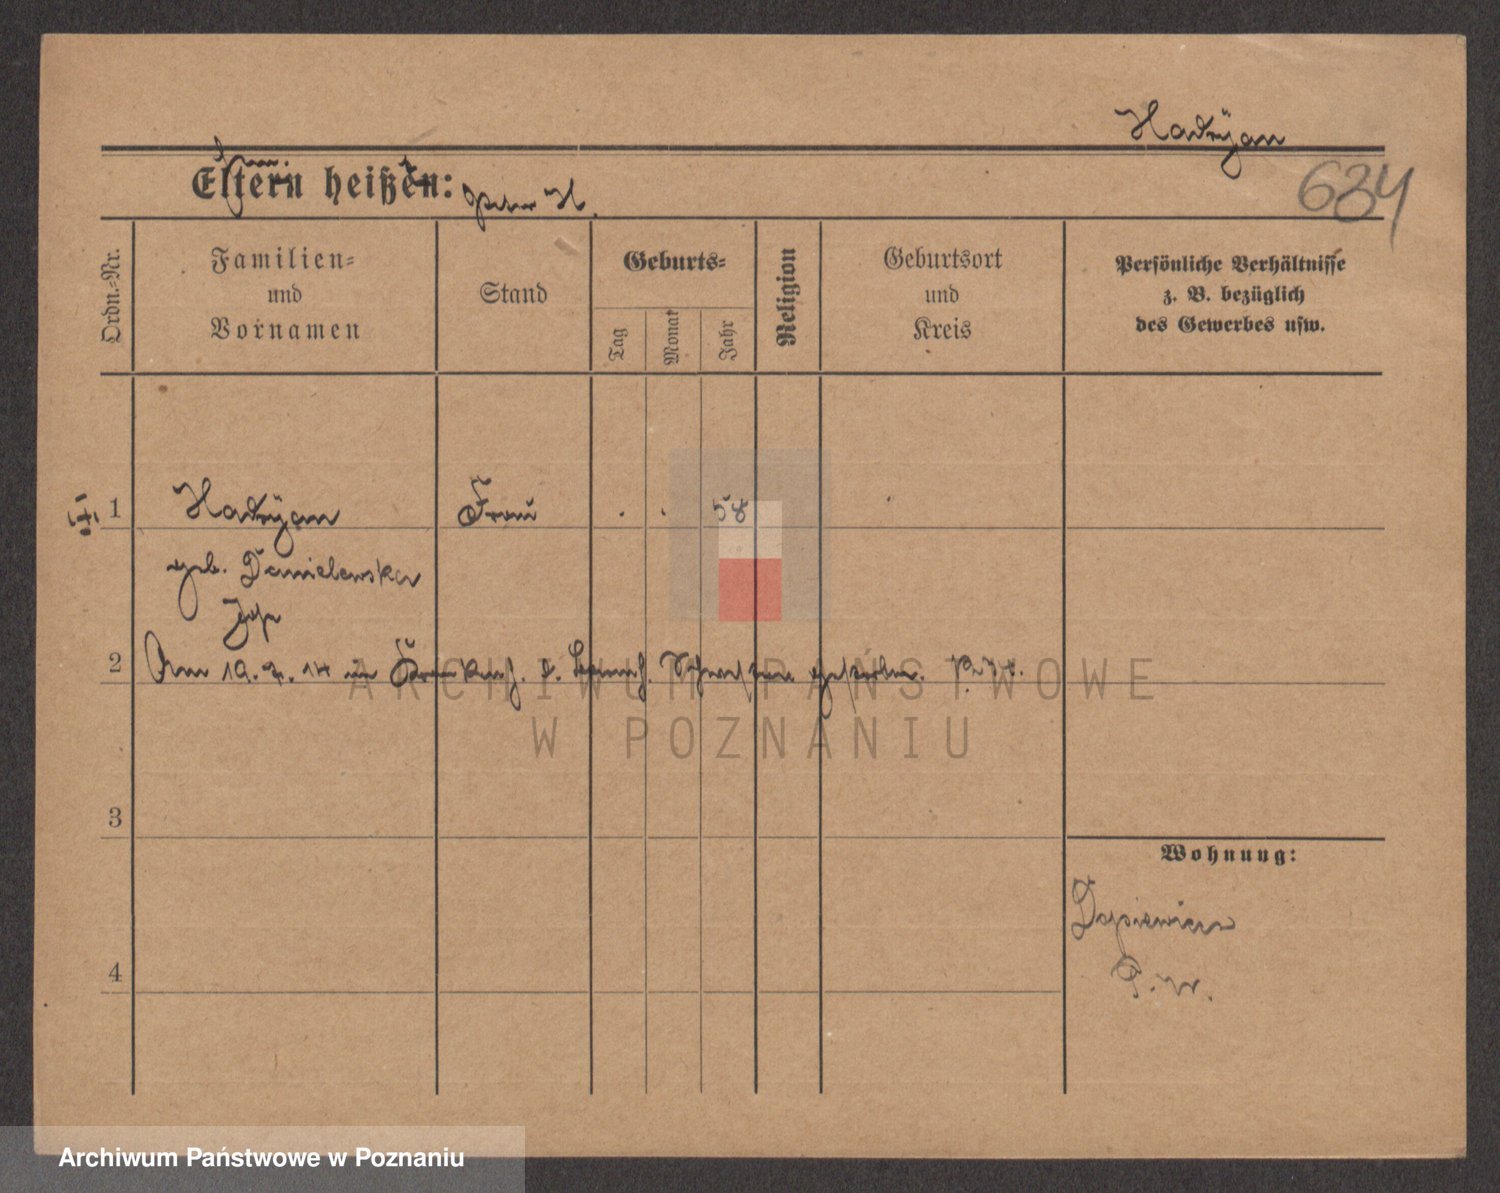 Hadryan
634
Eltern heißen: Peter H.
Ordn.-Nr.
Familien-
und
Vornamen
Stand
Geburts-
Tag
Monat
Jahr
Religion
Geburtsort
und
Kreis
Persönliche Verhältnisse
z. B. bezüglich
des Gewerbes usw.
1 Hadryan Frau . . 58
geb. Danielewska
2 Am 19. 2. 14 in Krankenh. d. Barmh. Schwestern gestorben.
3
Wohnung:
Dopiewiec
P. W.
4
ARCHIWUM PAŃSTWOWE
W POZNANIU
Archiwum Państwowe w Poznaniu